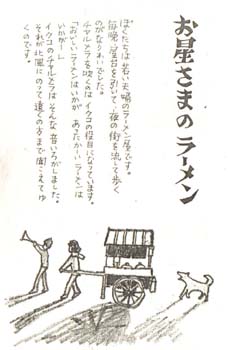 お星さまのラーメン
ぼくたちは若い夫婦のラーメン屋です。
毎晩、屋台を引いて、夜の街を流して歩く
のがなりわいでした。
チャルメラを吹くのはイクコの役目になっています。
「おいしいラーメンはいかが　あたたかいラーメンは
いかが―」
イクコのチャルメラはそんな音いろがしました。
それが北風にのって遠くの方まで聞こえてゆ
くのです。